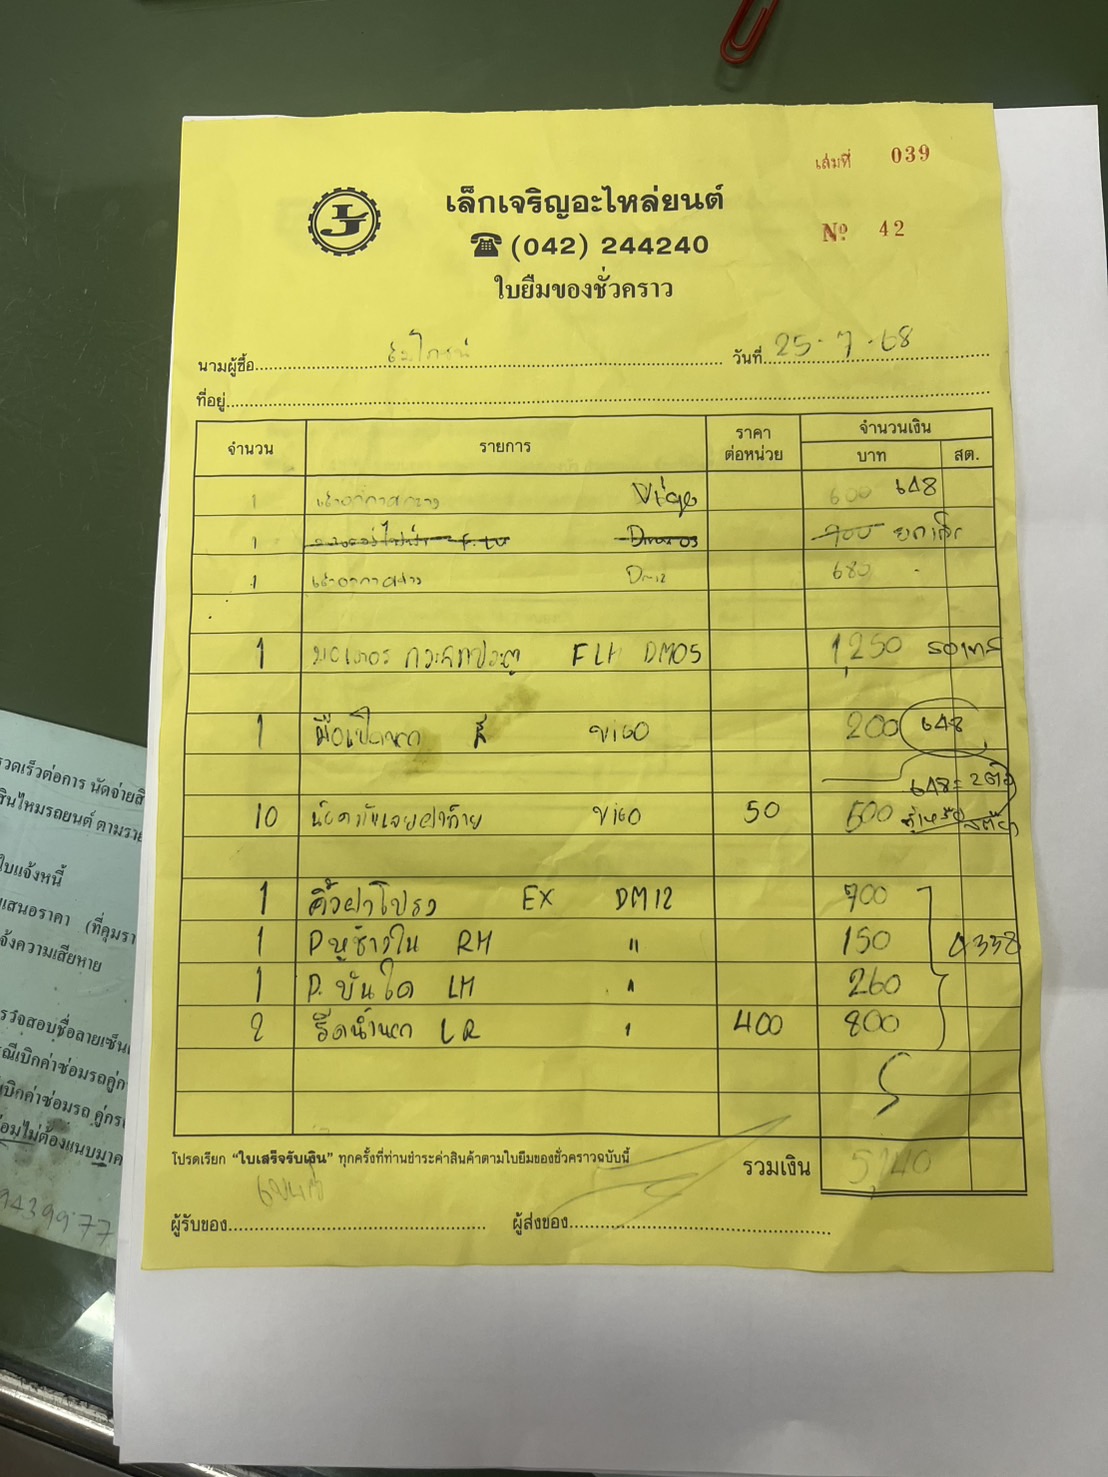 เล่มที่ 039
เล็กเจริญอะไหล่ยนต์
LJ
(042) 244240
Nº 42
ใบยืมของชั่วคราว
นามผู้ซื้อ
วันที่ 25-7-68
ที่อยู่
จำนวน รายการ ราคาต่อหน่วย จำนวนเงิน
บาท สต.
1 Vigo 600 648
1 700 ยกเลิก
1 DM12 680 -
1 มอเตอร์ กระจกประตู FLH DM05 1,250
1 มือเปิดนอก VIGO 200 648
648 = 2 ตัว
10 VIGO 50 500
1 คิ้วฝาโปรง EX DM12 700
1 P. หูช้างใน RH " 150 4338
1 P. บันได LH " 260
2 รีดน้ำนอก LR " 400 800
โปรดเรียก “ใบเสร็จรับเงิน” ทุกครั้งที่ท่านชำระค่าสินค้าตามใบยืมของชั่วคราวฉบับนี้
รวมเงิน 5,140
ผู้รับของ ผู้ส่งของ
รวดเร็วต่อการ นัดจ่ายสิ
สินไหมรถยนต์ ตามราย
ใบแจ้งหนี้
เสนอราคา (ที่คุมรา
จ้งความเสียหาย
รวจสอบชื่อลายเซ็น
รณีเบิกค่าซ่อมรถคู่ก
เบิกค่าซ่อมรถ คู่กร
่อมไม่ต้องแนบมาค
9439977